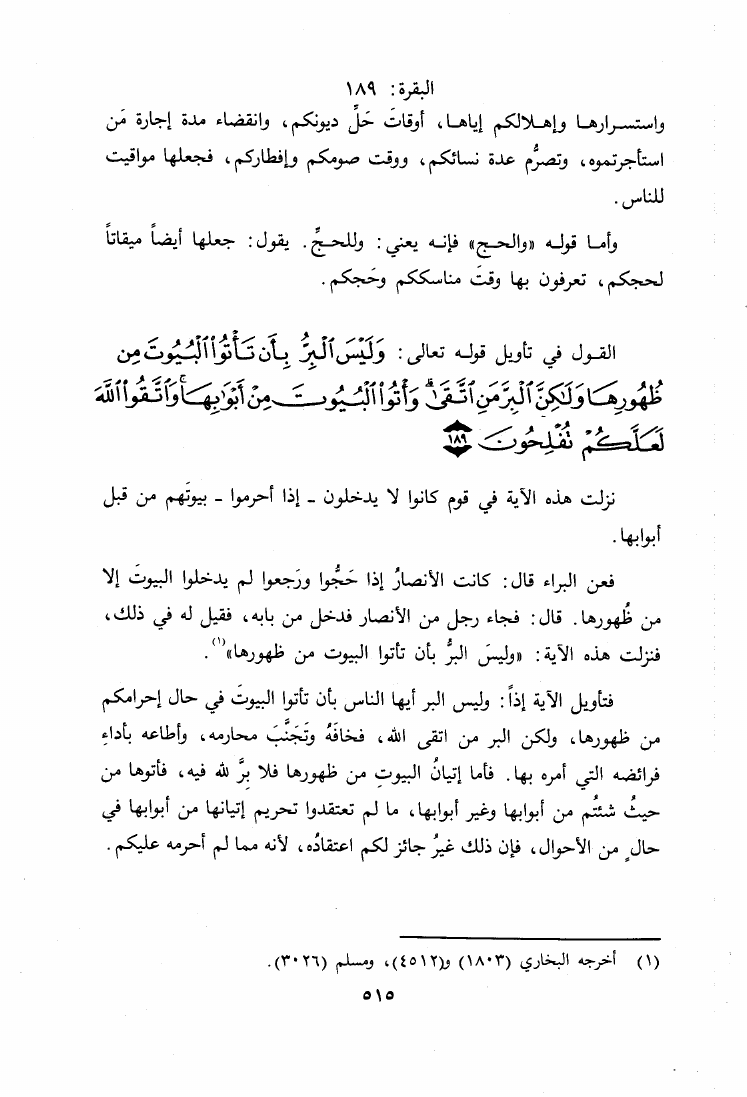 البقرة: ١٨٩
واستسرارها وإهلالكم إياها، أوقاتَ حَلِّ ديونكم، وانقضاء مدة إجارة مَن
استأجرتموه، وتصرُّم عدة نسائكم، ووقت صومكم وإفطاركم، فجعلها مواقيت
للناس.
وأما قوله «والحج» فإنه يعني: وللحجِّ. يقول: جعلها أيضاً ميقاتاً
لحجكم، تعرفون بها وقتَ مناسككم وحَجكم.
القول في تأويل قوله تعالى: وَلَيْسَ ٱلْبِرُّ بِأَن تَأْتُوا۟ ٱلْبُيُوتَ مِن
ظُهُورِهَا وَلَٰكِنَّ ٱلْبِرَّ مَنِ ٱتَّقَىٰ ۗ وَأْتُوا۟ ٱلْبُيُوتَ مِنْ أَبْوَٰبِهَا ۚ وَٱتَّقُوا۟ ٱللَّهَ
لَعَلَّكُمْ تُفْلِحُونَ ١٨٩
نزلت هذه الآية في قوم كانوا لا يدخلون - إذا أحرموا - بيوتَهم من قبل
أبوابها.
فعن البراء قال: كانت الأنصارُ إذا حَجُّوا ورَجعوا لم يدخلوا البيوتَ إلا
من ظُهورها. قال: فجاء رجل من الأنصار فدخل من بابه، فقيل له في ذلك،
فنزلت هذه الآية: «وليسَ البرُّ بأن تأتوا البيوت من ظهورها»(١).
فتأويل الآية إذاً: وليس البر أيها الناس بأن تأتوا البيوتَ في حال إحرامكم
من ظهورها، ولكن البر من اتقى الله، فخافَهُ وتَجَنَّبَ محارمه، وأطاعه بأداءِ
فرائضه التي أمره بها. فأما إتيانُ البيوتِ من ظهورها فلا بِرَّ لله فيه، فأتوها من
حيثُ شئتُم من أبوابها وغير أبوابها، ما لم تعتقدوا تحريم إتيانها من أبوابها في
حالٍ من الأحوال، فإن ذلك غيرُ جائز لكم اعتقادُه، لأنه مما لم أحرمه عليكم.
(١) أخرجه البخاري (١٨٠٣) و(٤٥١٢)، ومسلم (٣٠٢٦).
٥١٥